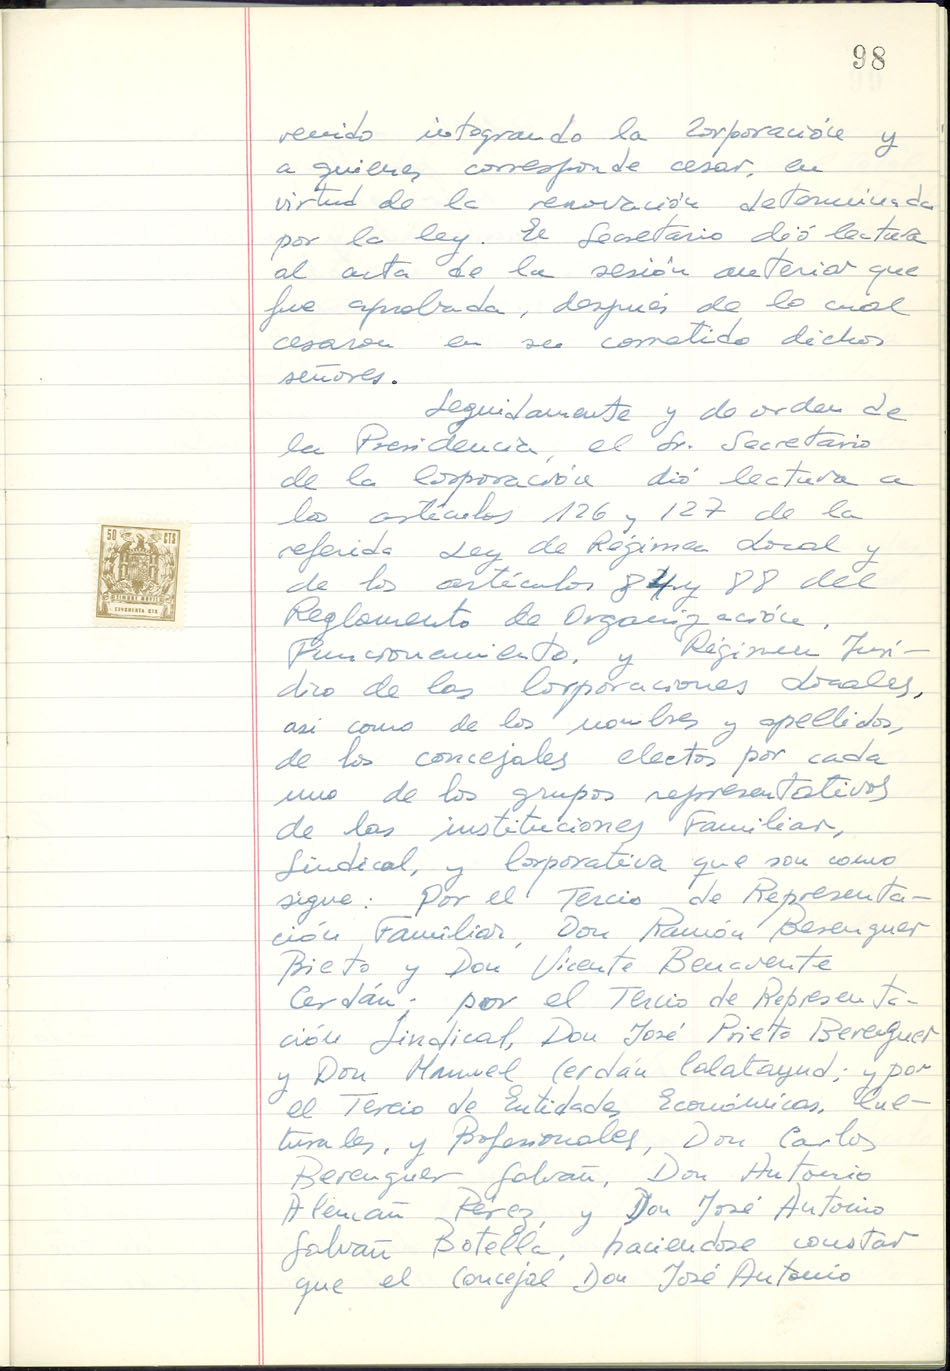 98
venido integrando la Corporación y
a quienes corresponde cesar, en
virtud de la renovación determinada
por la ley. El Secretario dió lectura
al acta de la sesión anterior que
fue aprobada, después de lo cual
cesaron en su cometido dichos
señores.
Seguidamente y de orden de
la Presidencia, el Sr. Secretario
de la Corporación dió lectura a
los artículos 126 y 127 de la
referida Ley de Régimen Local y
de los artículos 84 y 88 del
Reglamento de Organización,
Funcionamiento, y Régimen Jurí-
dico de las Corporaciones Locales,
asi como de los nombres y apellidos,
de los concejales electos por cada
uno de los grupos representativos
de las instituciones Familiar,
Sindical, y Corporativa que son como
sigue: Por el Tercio de Representa-
ción Familiar, Don Ramón Berenguer
Prieto y Don Vicente Benavente
Cerdán; por el Tercio de Representa-
ción Sindical, Don José Prieto Berenguer
y Don Manuel Cerdán Calatayud; y por
el Tercio de Entidades Económicas, Cul-
turales, y Profesionales, Don Carlos
Berenguer Galvañ, Don Antonio
Alemañ Pérez, y Don José Antonio
Galvañ Botella, haciendose constar
que el Concejal Don José Antonio
50 CTS
TIMBRE MOVIL
CINCUENTA CTS